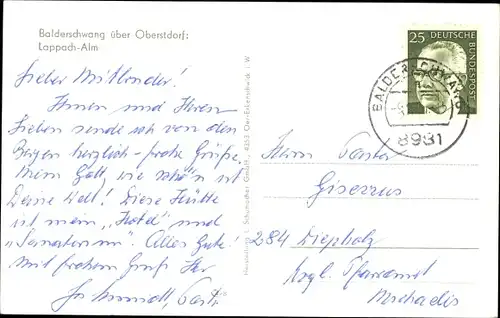 Balderschwang über Oberstdorf:
Lappach-Alm
Lieber Mitbruder!
Ihnen und Ihren
Lieben sende ich von den
Bergen herzlich-frohe Grüße.
Mein Gott, wie schön ist
Deine Welt! Diese Hütte
ist mein „Hotel" und
„Sanatorium". Alles Gute!
Mit frohem Gruß Ihr
25 DEUTSCHE
BUNDESPOST
BALDERSCHWANG
8981
Herrn Pastor
284 Diepholz
Evgl. Pfarramt
Michaelis